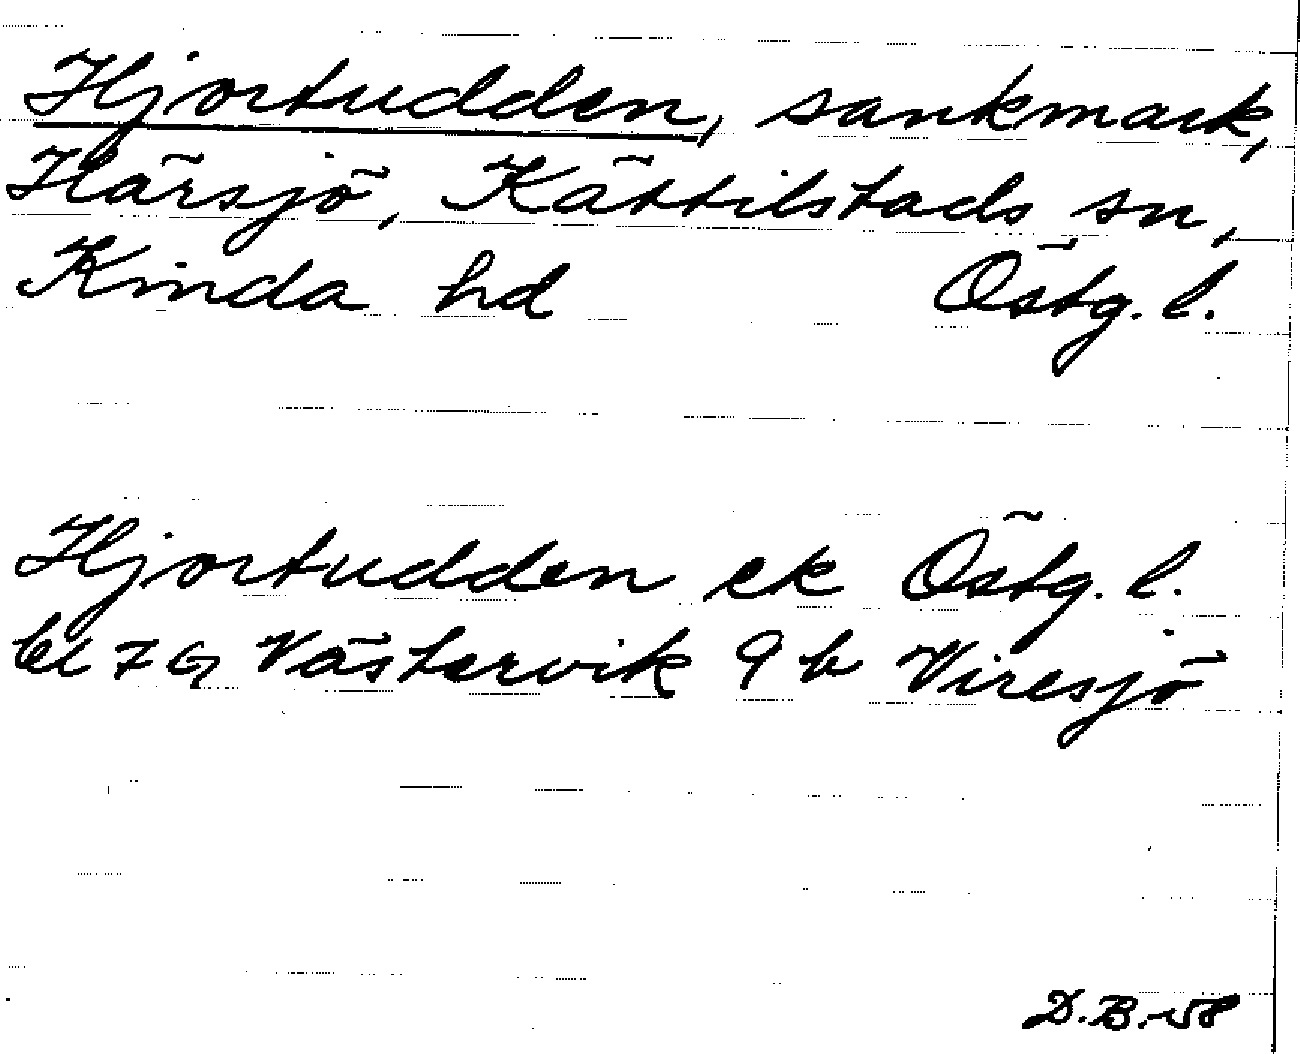 Hjortudden, sankmark,
Härsjö, Kättilstads sn,
Kinda hd Östg. l.
Hjortudden ek Östg. l.
bl 7 G Västervik 9 b Viresjö
D.B.-58